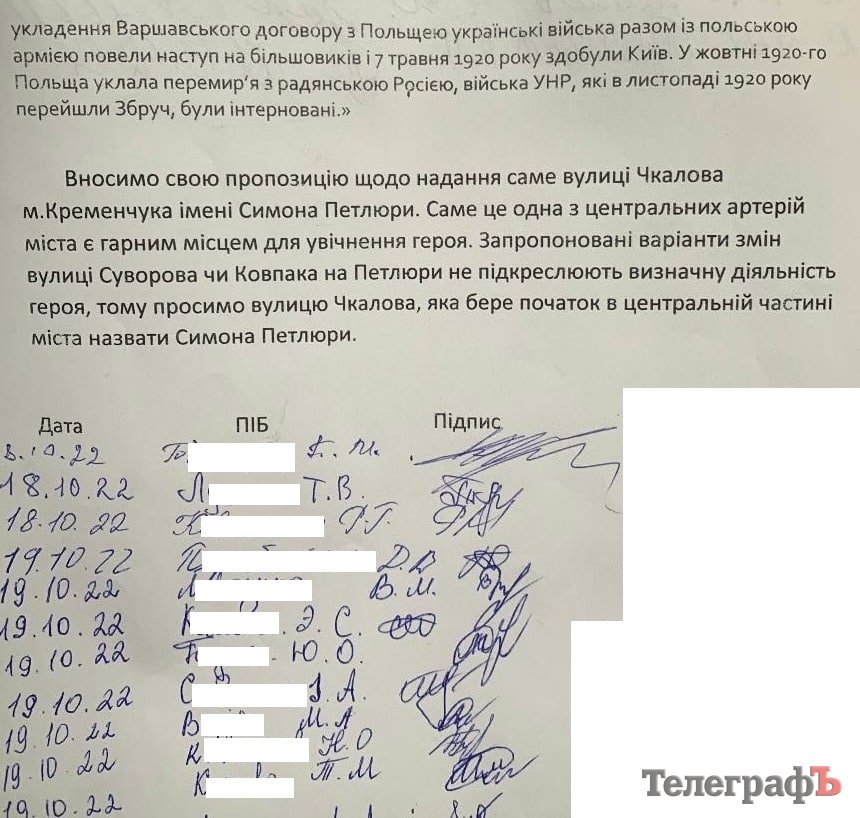 укладення Варшавського договору з Польщею українські війська разом із польською
армією повели наступ на більшовиків і 7 травня 1920 року здобули Київ. У жовтні 1920-го
Польща уклала перемир'я з радянською Росією, війська УНР, які в листопаді 1920 року
перейшли Збруч, були інтерновані.»
Вносимо свою пропозицію щодо надання саме вулиці Чкалова
м.Кременчука імені Симона Петлюри. Саме це одна з центральних артерій
міста є гарним місцем для увічнення героя. Запропоновані варіанти змін
вулиці Суворова чи Ковпака на Петлюри не підкреслюють визначну діяльність
героя, тому просимо вулицю Чкалова, яка бере початок в центральній частині
міста назвати Симона Петлюри.
Дата ПІБ Підпис
18.10.22 Т.В.
18.10.22
19.10.22 Д.В
19.10.22 В.М.
19.10.22 Э.С.
19.10.22 Ю.О.
19.10.22 І.А.
19.10.22 М.А
19.10.22 Н.О
19.10.22 Т.М
19.10.22
ТелеграфЪ